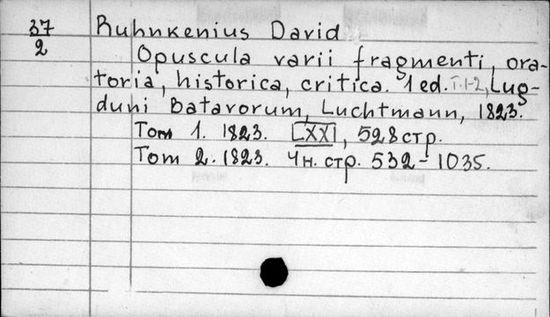 37
2
Ruhnkenius David
Opuscula varii fragmenti, ora-
toria, historica, critica. 1 ed. T.1-2, Lug-
duni Batavorum, Luchtmann, 1823.
Том 1. 1823. [XX], 528 стр.
Том 2. 1823. Чн. стр. 532-1035.